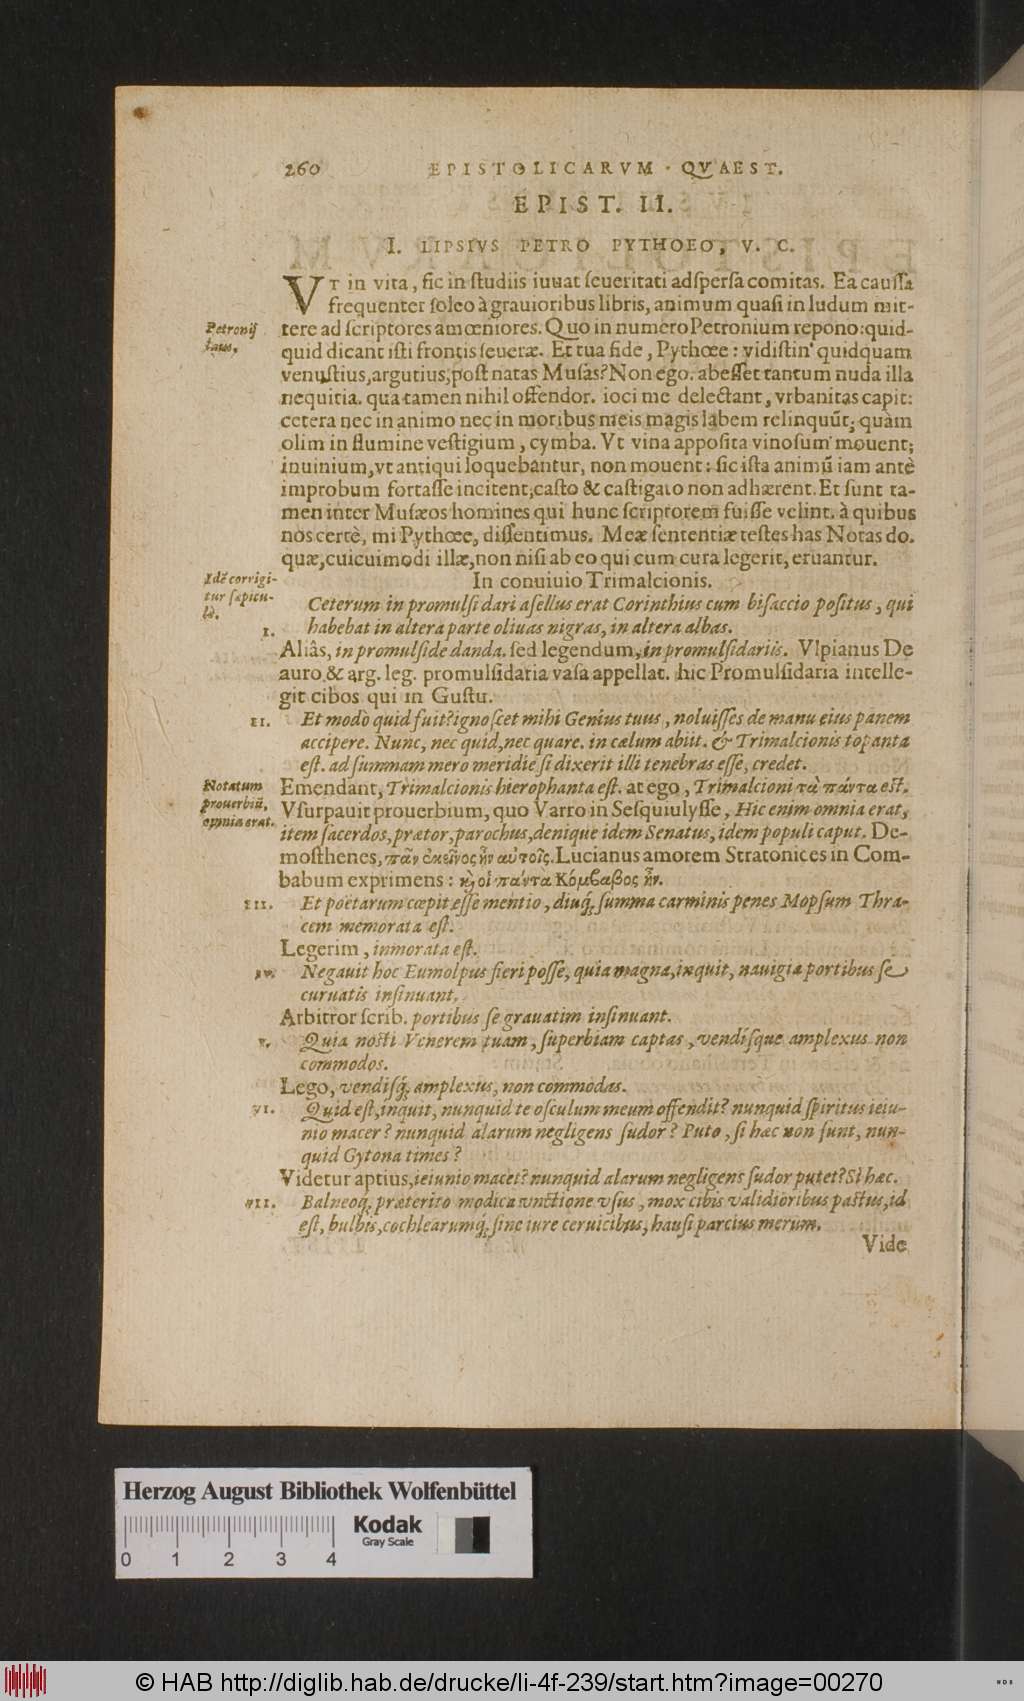 260 EPISTOLICARVM · QVAEST.
EPIST. II.
I. LIPSIVS PETRO PYTHOEO, V. C.
VT in vita, sic in studiis iuuat seueritati adspersa comitas. Ea caussa
frequenter soleo à grauioribus libris, animum quasi in ludum mit-
Petronij
laus.
tere ad scriptores amœniores. Quo in numero Petronium repono: quid-
quid dicant isti frontis seueræ. Et tua fide, Pythœe: vidistin' quidquam
venustius, argutius, post natas Musas? Non ego. abesset tantum nuda illa
nequitia. qua tamen nihil offendor. ioci me delectant, vrbanitas capit:
cetera nec in animo nec in moribus meis magis labem relinquũt, quàm
olim in flumine vestigium, cymba. Vt vina apposita vinosum mouent;
inuinium, vt antiqui loquebantur, non mouent: sic ista animũ iam antè
improbum fortasse incitent, casto & castigato non adhærent. Et sunt ta-
men inter Musæos homines qui hunc scriptorem fuisse velint. à quibus
nos certè, mi Pythœe, dissentimus. Meæ sententiæ testes has Notas do.
quæ, cuicuimodi illæ, non nisi ab eo qui cum cura legerit, eruantur.
Idẽ corrigi-
tur sapicu-
lè.
In conuiuio Trimalcionis.
Ceterum in promulsi dari asellus erat Corinthius cum bisaccio positus, qui
I. habebat in altera parte oliuas nigras, in altera albas.
Aliâs, in promulside danda. sed legendum, in promulsidariis. Vlpianus De
auro & arg. leg. promulsidaria vasa appellat. hic Promulsidaria intelle-
git cibos qui in Gustu.
II. Et modò quid fuit? ignoscet mihi Genius tuus, noluisses de manu eius panem
accipere. Nunc, nec quid, nec quare. in cælum abiit. & Trimalcionis topanta
est. ad summam mero meridie si dixerit illi tenebras esse, credet.
Notatum
prouerbiũ,
omnia erat.
Emendant, Trimalcionis hierophanta est. at ego, Trimalcioni τὰ πάντα est.
Vsurpauit prouerbium, quo Varro in Sesquiulysse, Hic enim omnia erat,
item sacerdos, prætor, parochus, denique idem Senatus, idem populi caput. De-
mosthenes, πᾶν ἐκεῖνος ἦν αὐτοῖς. Lucianus amorem Stratonices in Com-
babum exprimens: καὶ οἱ πάντα Κόμβαβος ἦν.
III. Et poëtarum cœpit esse mentio, diuq; summa carminis penes Mopsum Thra-
cem memorata est.
Legerim, inmorata est.
IV. Negauit hoc Eumolpus fieri posse, quia magna, inquit, nauigia portibus se
curuatis insinuant.
Arbitror scrib. portibus se grauatim insinuant.
V. Quia nosti Venerem tuam, superbiam captas, vendisque amplexus non
commodos.
Lego, vendisq; amplexus, non commodas.
VI. Quid est, inquit, nunquid te osculum meum offendit? nunquid spiritus ieiu-
nio macer? nunquid alarum negligens sudor? Puto, si hæc non sunt, nun-
quid Gytona times?
Videtur aptius, ieiunio macet? nunquid alarum negligens sudor putet? Si hæc.
VII. Balneoq; præterito modica vnctione vsus, mox cibis validioribus pastus, id
est, bulbis, cochlearumq; sine iure ceruicibus, hausi parcius merum.
Vide
Herzog August Bibliothek Wolfenbüttel
Kodak
Gray Scale
0 1 2 3 4
© HAB http://diglib.hab.de/drucke/li-4f-239/start.htm?image=00270